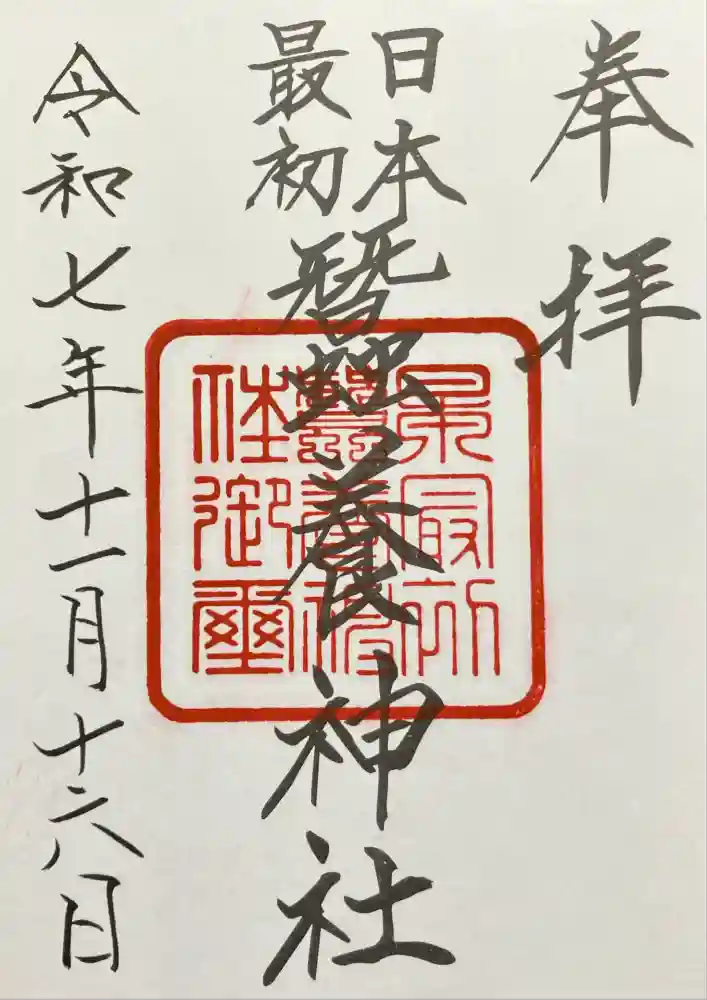 奉拝
日本
最初
蠶養神社
令和七年十一月十六日
日本最初
蠶養神
社御璽